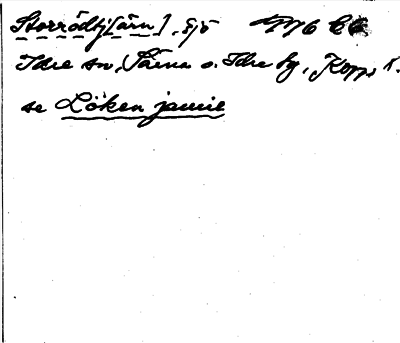 Storrödtj[ärn], sjö
Idre sn, Särna o. Idre tg, Kopp. l.
se Löken jaure